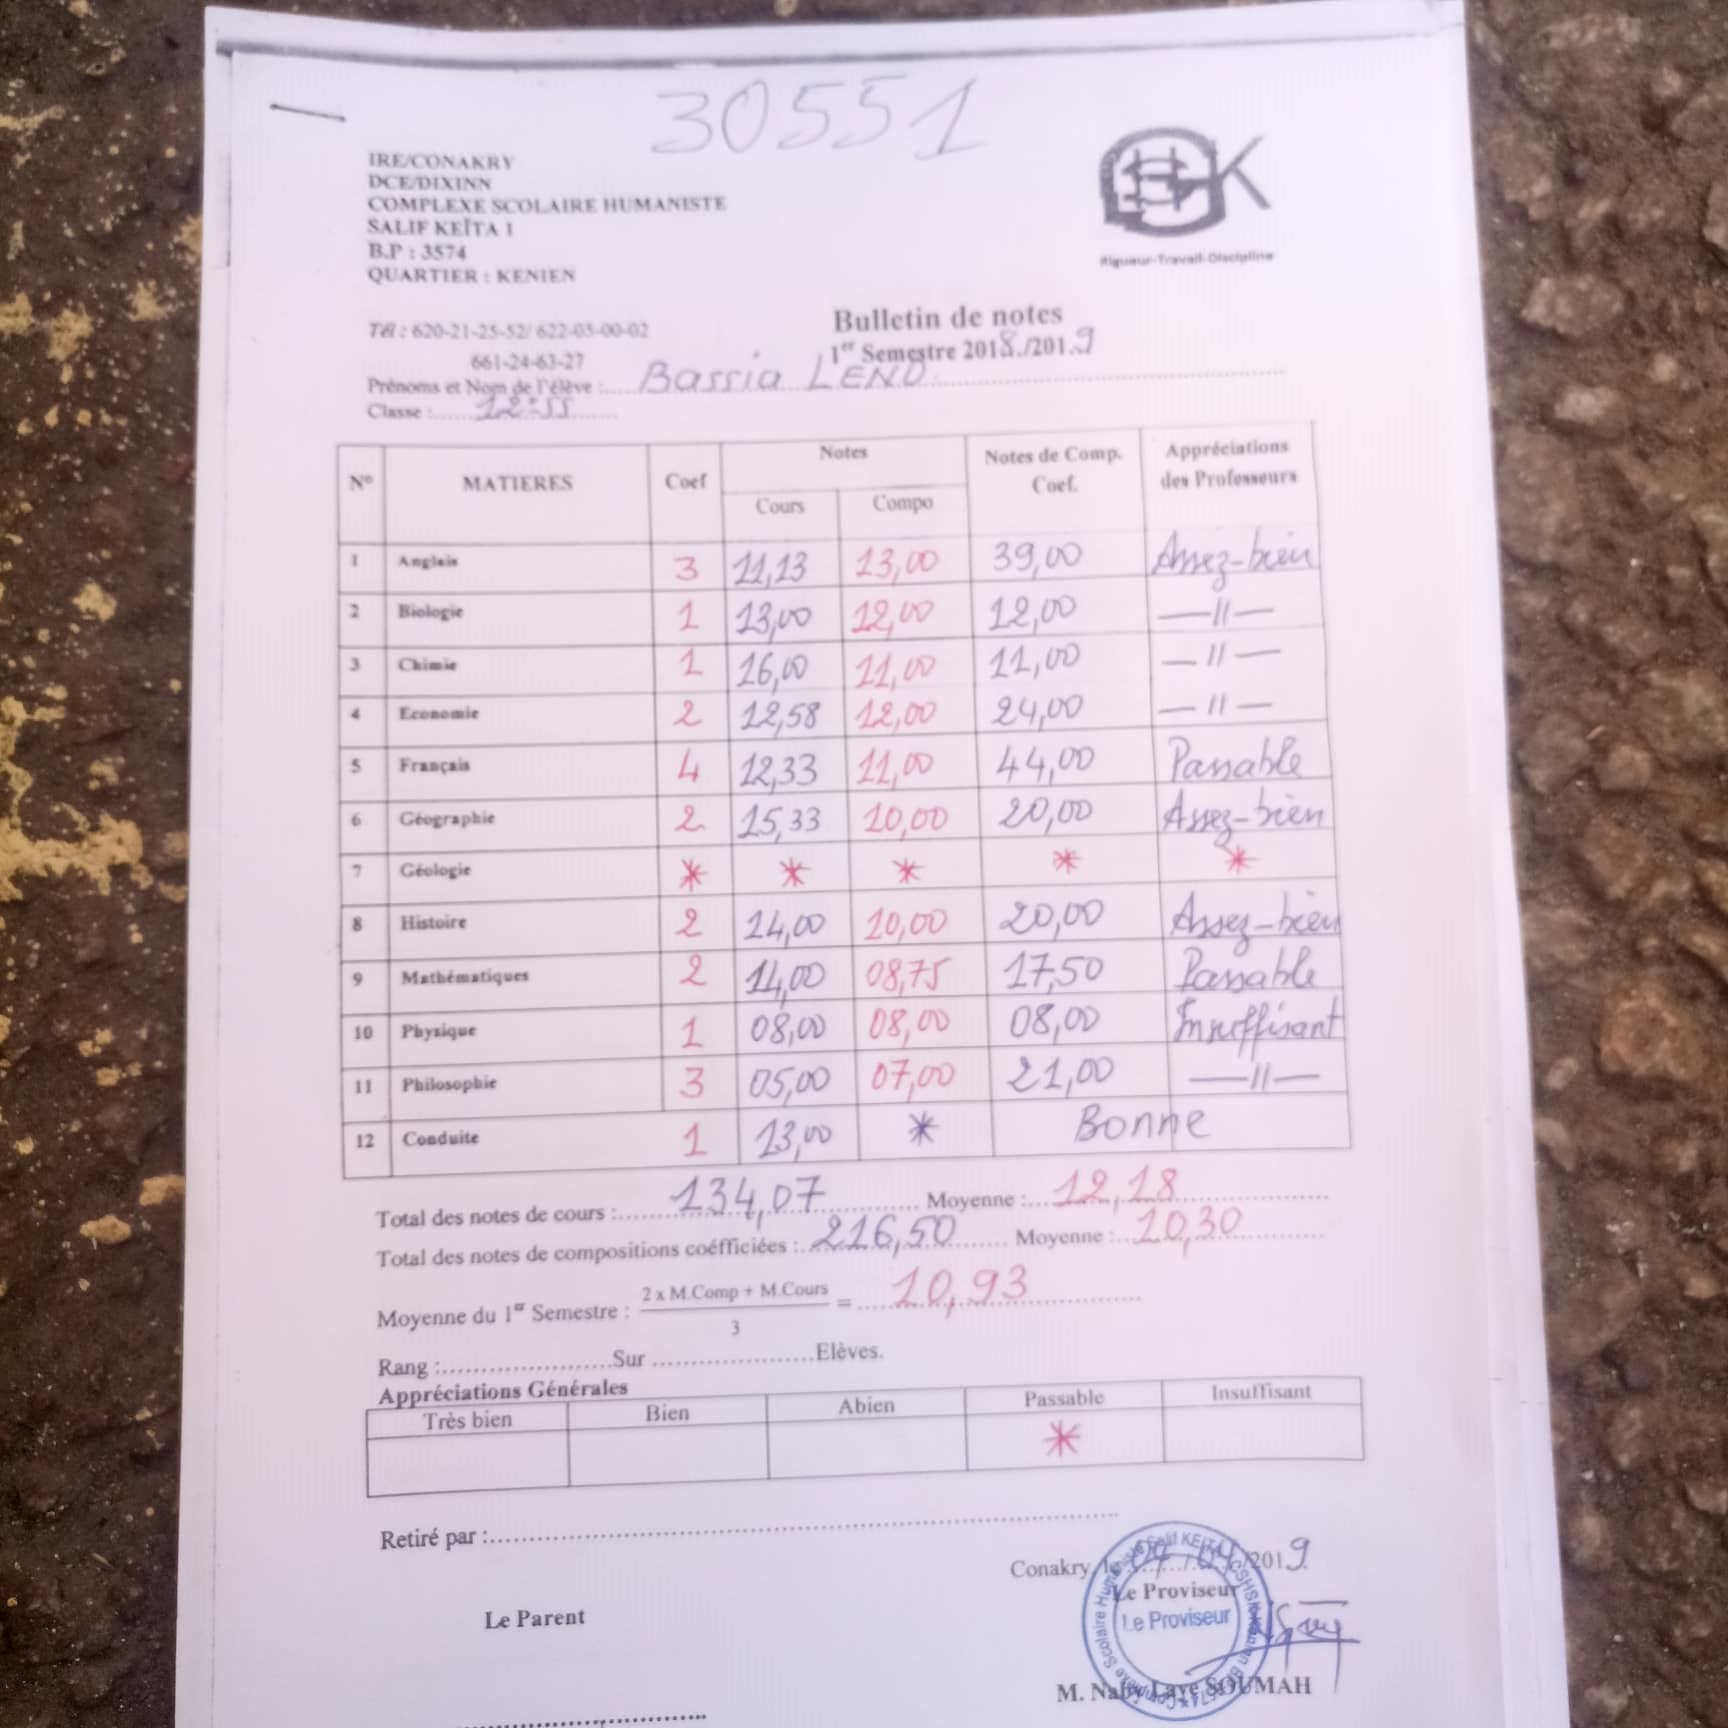 30551
IRE/CONAKRY
DCE/DIXINN
COMPLEXE SCOLAIRE HUMANISTE
SALIF KEÏTA I
B.P : 3574
QUARTIER : KENIEN
Rigueur-Travail-Discipline
Tél : 620-21-25-52/ 622-05-00-02
661-24-63-27
Bulletin de notes
1er Semestre 2018./201.9
Prénoms et Nom de l'élève : Bassia LENO
Classe : 12e SS
N° MATIERES Coef Notes Notes de Comp. Coef. Appréciations des Professeurs
Cours Compo
1 Anglais 3 11,13 13,00 39,00 Assez-bien
2 Biologie 1 13,00 12,00 12,00 —//—
3 Chimie 1 16,00 11,00 11,00 —//—
4 Economie 2 12,58 12,00 24,00 —//—
5 Français 4 12,33 11,00 44,00 Passable
6 Géographie 2 15,33 10,00 20,00 Assez-bien
7 Géologie * * * * *
8 Histoire 2 14,00 10,00 20,00 Assez-bien
9 Mathématiques 2 14,00 08,75 17,50 Passable
10 Physique 1 08,00 08,00 08,00 Insuffisant
11 Philosophie 3 05,00 07,00 21,00 —//—
12 Conduite 1 13,00 * Bonne
Total des notes de cours : 134,07 Moyenne : 12,18
Total des notes de compositions coéfficiées : 216,50 Moyenne : 10,30
Moyenne du 1er Semestre : 2 x M.Comp + M.Cours / 3 = 10,93
Rang : Sur Elèves.
Appréciations Générales
Très bien Bien Abien Passable Insuffisant
*
Retiré par :
Conakry, /2019
Le Proviseur
Le Proviseur
Le Parent
M. Naby Laye SOUMAH